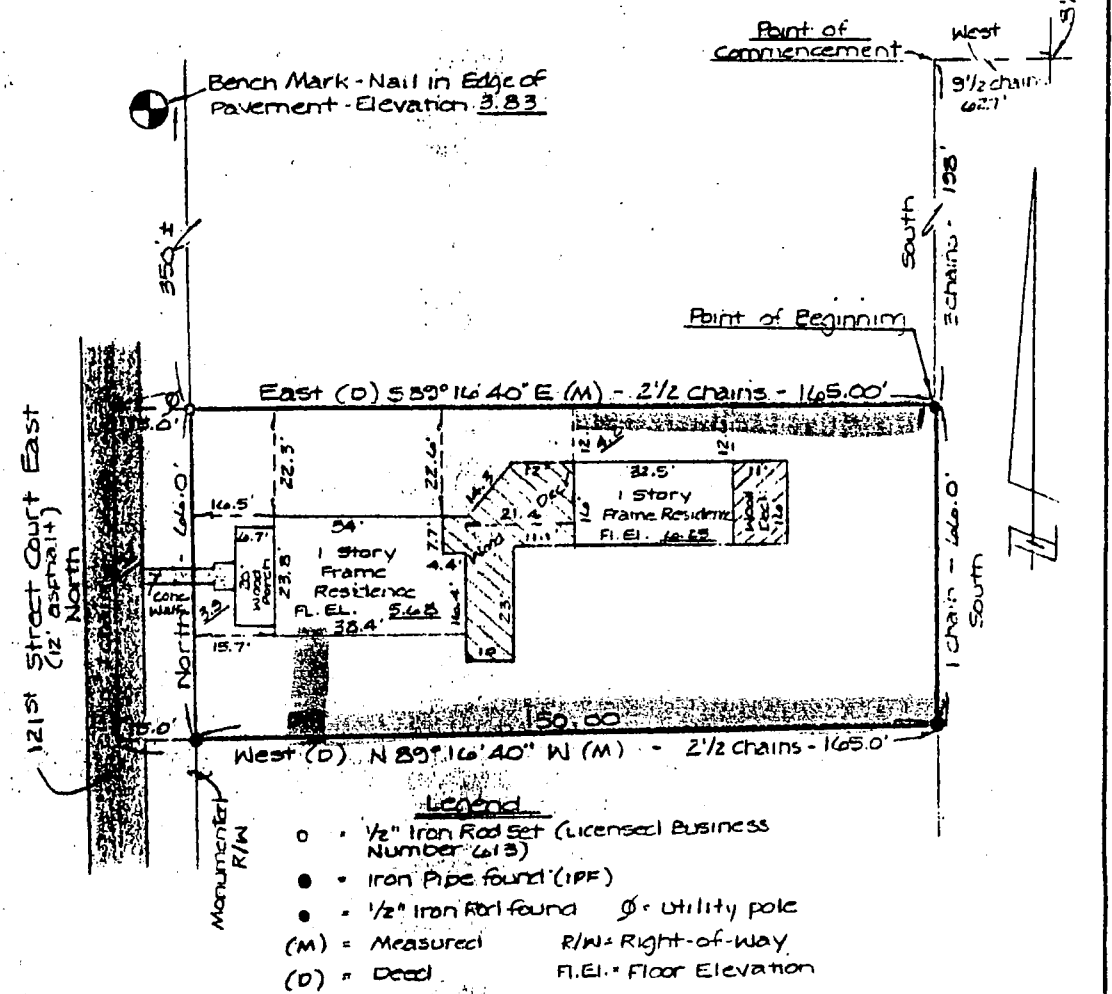 Point of
Commencement
West
9 1/2 chains
627'
Bench Mark - Nail in Edge of
Pavement - Elevation 3.83
350' ±
South
3 chains - 198'
Point of Beginning
East (D) S 89° 16' 40" E (M) - 2 1/2 chains - 165.00'
15.0'
121st Street Court East
(12' asphalt)
North
North - 66.0'
22.3'
22.6'
12.1'
12.
16.5'
54'
1 Story
Frame
Residence
FL. EL. 5.68
38.4'
6.7'
20'
Wood
Porch
23.8'
conc
Walk
3.9
15.7'
7.7'
4.4'
16.4'
14.3'
12'
Deck
21.4
11.1'
Wood
23'
10'
16'
32.5'
1 Story
Frame Residence
Fl. El. 6.65
11'
Wood
Deck
16'
1 chain - 66.0'
South
15.0'
150.00
West (D) N 89° 16' 40" W (M) - 2 1/2 chains - 165.0'
Monumented
R/W
Legend
○ = 1/2" Iron Rod Set (Licensed Business
Number 613)
● = Iron Pipe found (IPF)
● = 1/2" Iron Rod found Ø = utility pole
(M) = Measured R/W = Right-of-Way
(D) = Deed Fl. El. = Floor Elevation